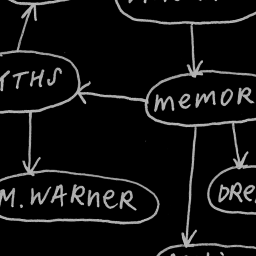 YTHS
MEMOR
M. WARNER
DRE